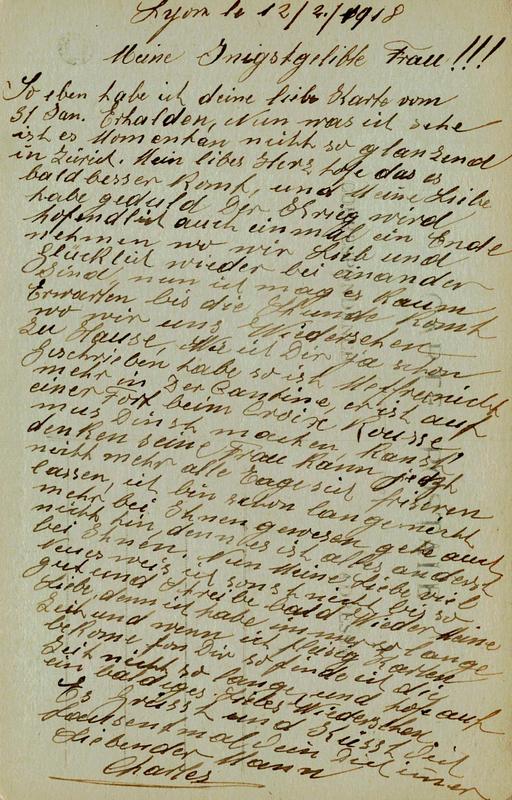 Lyon le 12/2/1918
Meine Inigstgelibte Frau!!!
So eben habe ich deine liebe Karte vom
31 Jan. Erhalden, Nun was ich sehe
ist es Momentan nicht so glanzend
in Zürich. Mein libes Herz, hofe das es
bald besser Komt, und Meine Liebe
habe geduld Der Krieg wird
hofendlich auch einmal ein Ende
nehmen wo wir Lieb und
Glücklich wieder bei einander
Sind, nun ich mag es Kaum
Erwarten bis die Stunde Komt
wo wir uns Wiedersehen
zu Hause, Als ich Dir ja schon
Geschrieben habe so ist nicht
mehr in Der Cantine, er ist auf
einer Fort beim Croix Rousse
mus Dinst machen, Kanst
denken seine Frau Kann jetzt
nicht mehr alle Tage sich frisiren
lassen, ich bin schon lange nicht
mehr bei Ihnen gewesen gehe auch
nicht hin, denn es ist alles anderst
bei Ihnen. Nun Meine Liebe viel
Neues weis ich sonst nicht, bis so
gut und Schreibe bald Wieder Meine
Liebe, denn ich habe immer so lange
Zeit und wenn ich fleisig Karten
bekome fon Dir so finde ich die
Zeit nicht so lange, und hofe auf
ein baldiges Liebes Wiedersehen
Es Grüsst und Küsst Dich
Tausentmal Dein Dich immer
Liebender Mann
Charles